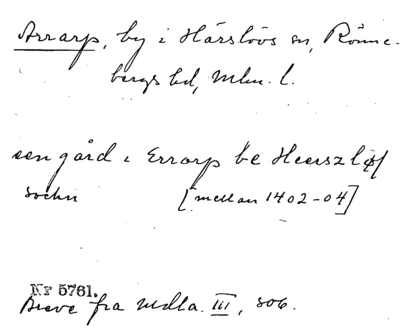 Arrarp, by i Härslövs sn, Rönne-
bergs hd, Mlm. l.
een gård i Errarp be Heerszløf
sochn [mellan 1402-04]
Nr 5761.
Breve fra Mdla. III, 306.